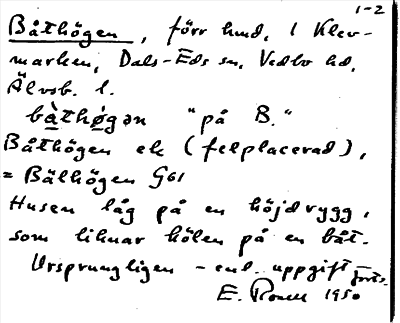 1-2
Båthögen, förr hmd. i Klev-
marken, Dals-Eds sn, Vedbo hd,
Älvsb. l.
bàthǿgən "på B."
Båthögen ek (felplacerad),
= Bålhögen G61
Husen låg på en höjdrygg,
som liknar kölen på en båt.
Ursprungligen - enl. uppgift forts.
E. 1950